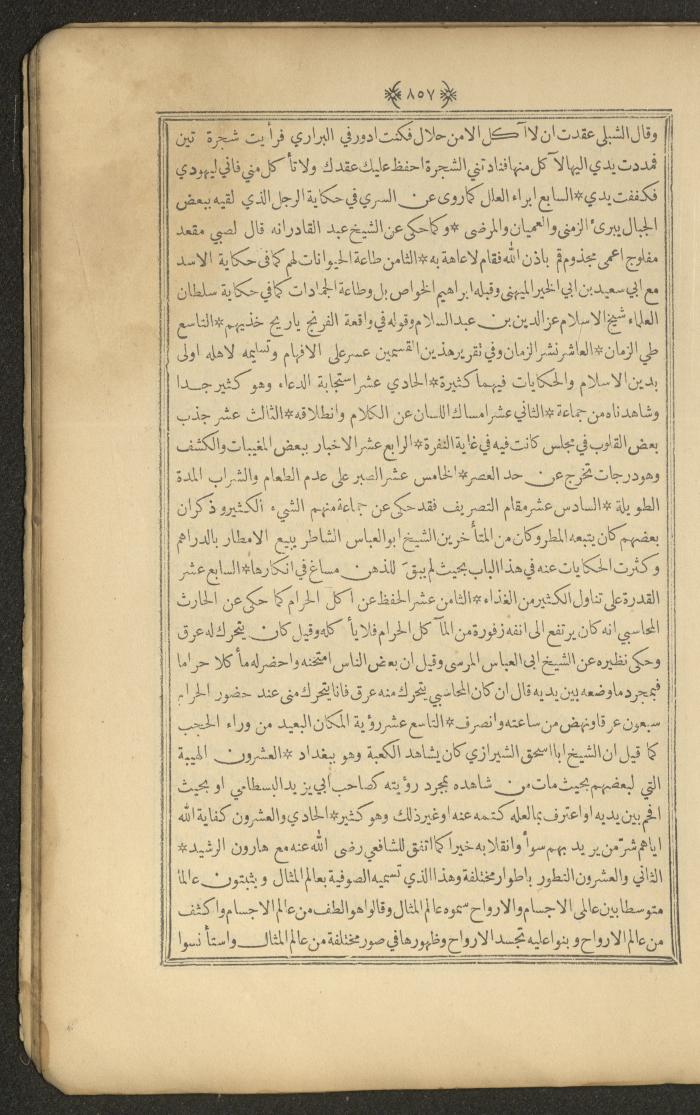 ٨٥٧
وقال الشبلى عقدت ان لا آكل الا من حلال فكنت ادور في البراري فرأيت شجرة تين
فمددت يدي اليها لآكل منها فنادتني الشجرة احفظ عليك عقدك ولا تأكل مني فاني ليهودي
فكففت يدي * السابع ابراء العلل كما روى عن السري في حكاية الرجل الذي لقيه ببعض
الجبال يبرئ الزمنى والعميان والمرضى * وكما حكى عن الشيخ عبد القادر انه قال لصبي مقعد
مفلوج اعمى مجذوم قم باذن الله فقام لا عاهة به * الثامن طاعة الحيوانات لهم كما في حكاية الاسد
مع ابي سعيد بن ابي الخير الميهنى وقبله ابراهيم الخواص بل وطاعة الجمادات كما في حكاية سلطان
العلماء شيخ الاسلام عز الدين بن عبد السلام وقوله في واقعة الفرنج ياريح خذيهم * التاسع
طي الزمان * العاشر نشر الزمان وفي تقرير هذين القسمين عسر على الافهام وتسليمه لاهله اولى
بدين الاسلام والحكايات فيهما كثيرة * الحادي عشر استجابة الدعاء وهو كثير جدا
وشاهدناه من جماعة * الثاني عشر امساك اللسان عن الكلام وانطلاقه * الثالث عشر جذب
بعض القلوب في مجلس كانت فيه في غاية النفرة * الرابع عشر الاخبار ببعض المغيبات والكشف
وهو درجات تخرج عن حد العصر * الخامس عشر الصبر على عدم الطعام والشراب المدة
الطويلة * السادس عشر مقام التصريف فقد حكى عن جماعة منهم الشيء الكثير وذكر ان
بعضهم كان يتبعه المطر وكان من المتأخرين الشيخ ابو العباس الشاطر يبيع الامطار بالدراهم
وكثرت الحكايات عنه في هذا الباب بحيث لم يبق للذهن مساغ في انكارها * السابع عشر
القدرة على تناول الكثير من الغذاء * الثامن عشر الحفظ عن اكل الحرام كما حكى عن الحارث
المحاسبي انه كان يرتفع الى انفه زفورة من المآكل الحرام فلا يأكله وقيل كان يتحرك له عرق
وحكى نظيره عن الشيخ ابى العباس المرسى وقيل ان بعض الناس امتحنه واحضر له مأكلا حراما
فبمجرد ما وضعه بين يديه قال ان كان المحاسبي يتحرك منه عرق فانا يتحرك منى عند حضور الحرام
سبعون عرقا ونهض من ساعته وانصرف * التاسع عشر رؤية المكان البعيد من وراء الحجب
كما قيل ان الشيخ ابا اسحق الشيرازي كان يشاهد الكعبة وهو ببغداد * العشرون الهيبة
التي لبعضهم بحيث مات من شاهده بمجرد رؤيته كصاحب ابي يزيد البسطامي او بحيث
افحم بين يديه او اعترف بما لعله كتمه عنه او غير ذلك وهو كثير * الحادي والعشرون كفاية الله
اياهم شرّ من يريد بهم سوأ وانقلابه خيرا كما اتفق للشافعي رضى الله عنه مع هارون الرشيد *
الثاني والعشرون التطور باطوار مختلفة وهذا الذي تسميه الصوفية بعالم المثال ويثبتون عالما
متوسطا بين عالمى الاجسام والارواح سموه عالم المثال وقالوا هو الطف من عالم الاجسام واكثف
من عالم الارواح وبنوا عليه تجسد الارواح وظهورها في صور مختلفة من عالم المثال واستأنسوا